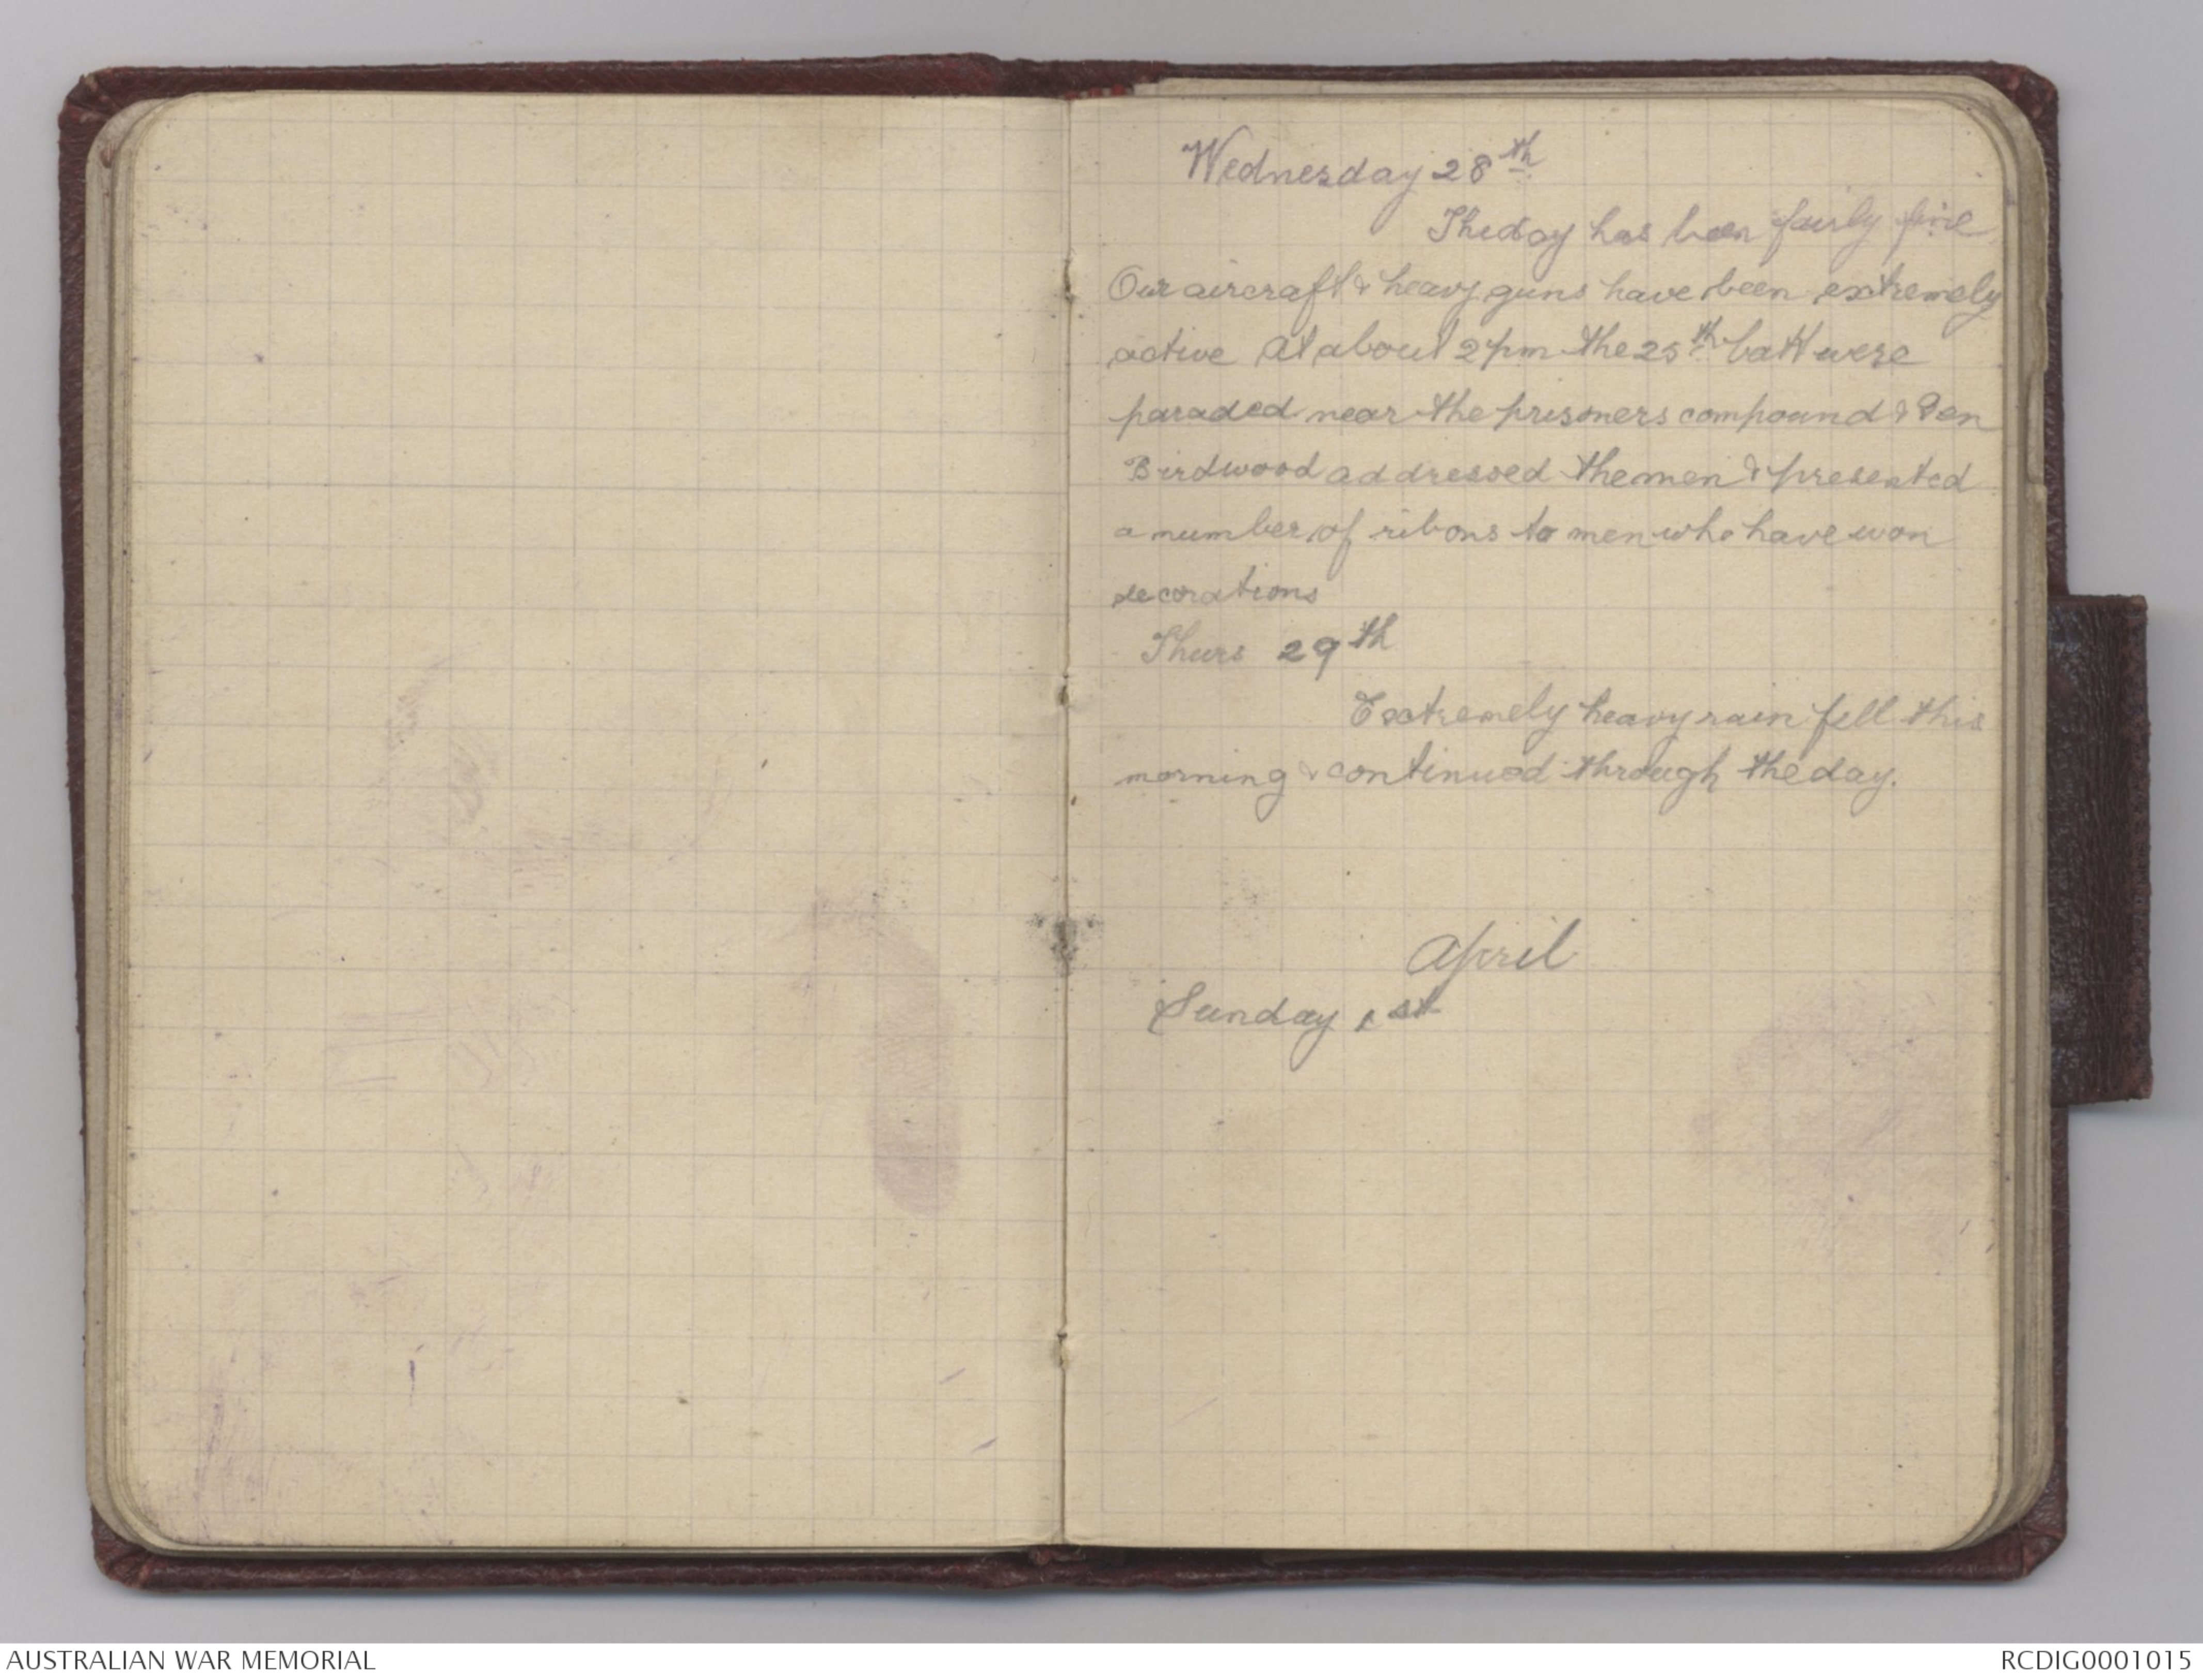 Wednesday 28th
The day has been fairly fine
Our aircraft & heavy guns have been extremely
active At about 2 pm the 25th batt were
paraded near the prisoners compound & Gen
Birdwood addressed the men & presented
a number of ribons to men who have won
decorations
Thurs 29th
Extremely heavy rain fell this
morning & continued through the day.
April
Sunday 1st
AUSTRALIAN WAR MEMORIAL
RCDIG0001015